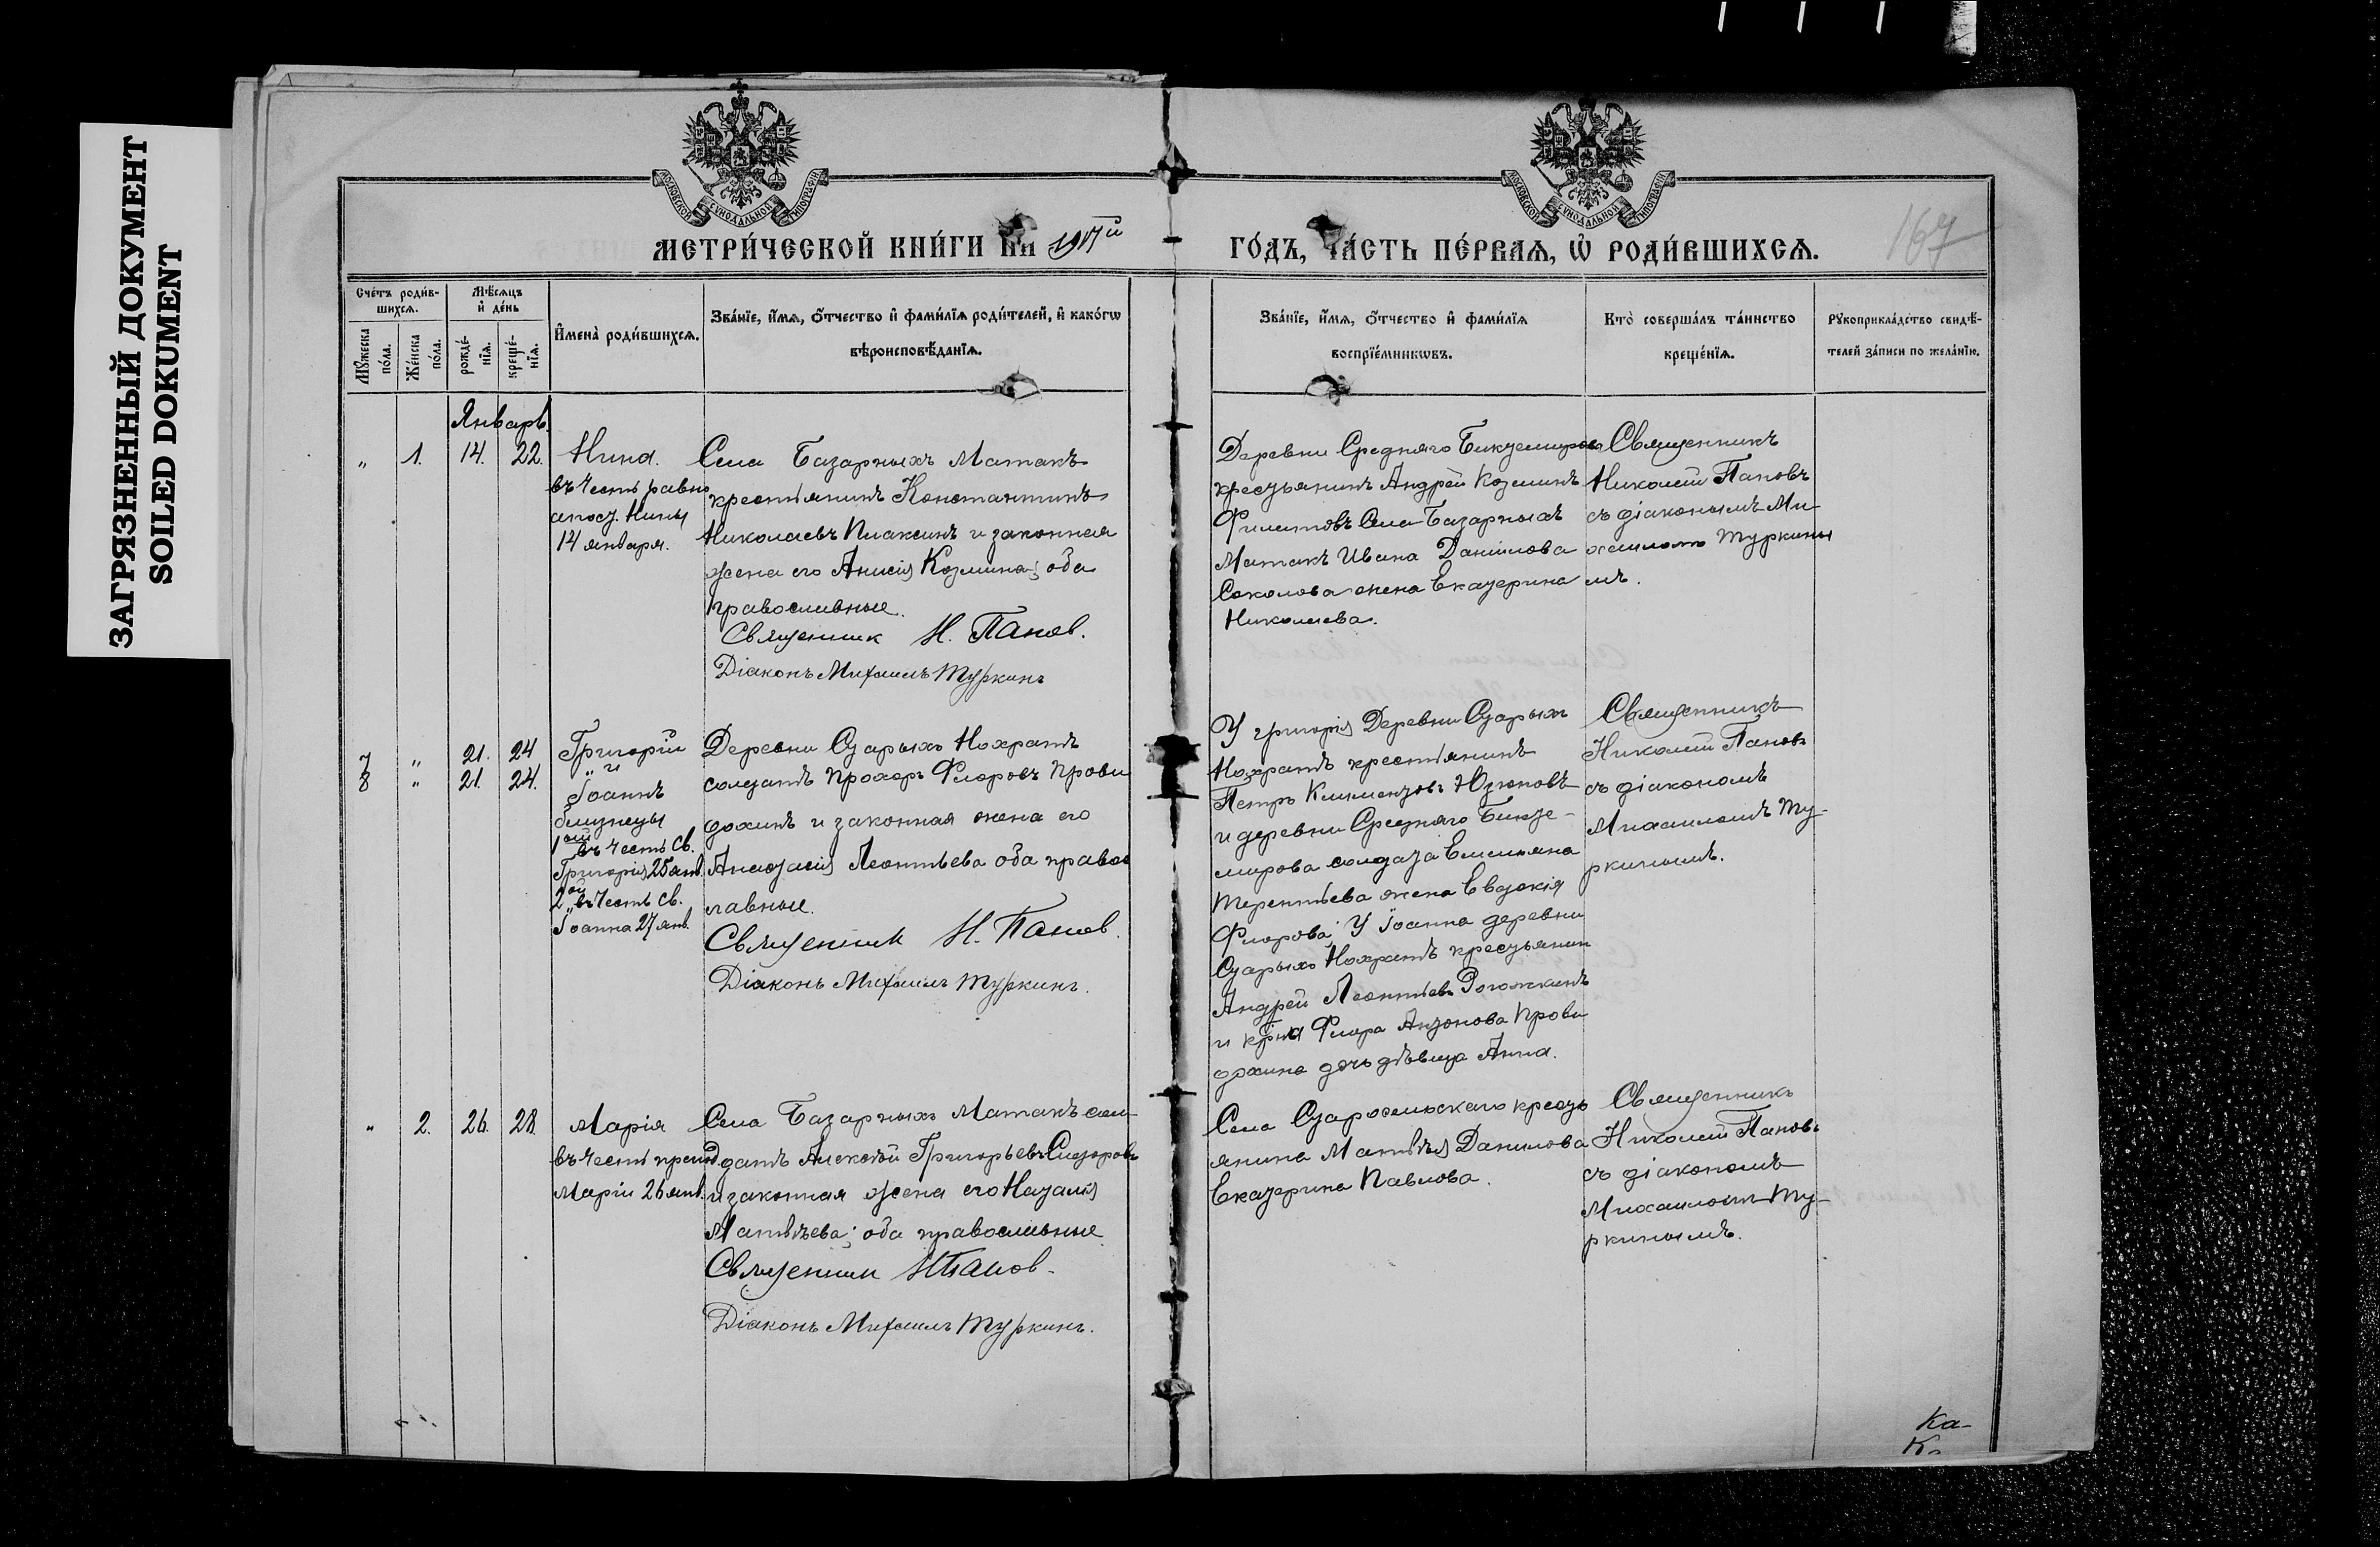 ЗАГРЯЗНЕННЫЙ ДОКУМЕНТ
SOILED DOKUMENT
МОСКОВСКОЙ СУНОДАЛЬНОЙ ТИПОГРАФІИ
МОСКОВСКОЙ СУНОДАЛЬНОЙ ТИПОГРАФІИ
МЕТРИ́ЧЕСКОЙ КНИ́ГИ НА 1917й
ГО́ДЪ, ЧА́СТЬ ПЕ́РВАЯ, Ѡ҆ РОДИ́ВШИХСѦ.
167
Сче́тъ роди́в-
шихсѧ.
Мꙋжеска
по́ла.
Же́нска
по́ла.
Мѣ́сѧцъ
и҆ де́нь
рожде́-
нїѧ.
креще́-
нїѧ.
И҆мена̀ роди́вшихсѧ.
Зва́нїе, и҆́мѧ, ѻ҆́тчество и҆ фами́лїѧ роди́телей, и҆ како́гѡ
вѣроисповѣ́данїѧ.
Зва́нїе, и҆́мѧ, ѻ҆́тчество и҆ фами́лїѧ
воспрїе́мникѡвъ.
Кто̀ соверша́лъ та́инство
креще́нїѧ.
Рꙋкоприкла́дство свидѣ́-
телей за́писи по жела́нїю.
Январь.
„ 1. 14. 22.
Нина.
въ честь равно
апост. Нины
14 января.
Села Базарныхъ Матакъ
крестьянинъ Константинъ
Николаевъ Плаксинъ и законная
жена его Анисія Козмина; оба
православные.
Священник Н. Панов.
Діаконъ Михаилъ Туркинъ
Деревни Средняго Биктемирова
крестьянинъ Андрей Козминъ
Филиповъ Села Базарныхъ
Матакъ Ивана Данилова
Соколова жена Екатерина
Николаева.
Священникъ
Николай Пановъ
съ діакономъ Ми
хаиломъ Туркины
мъ.
7 „ 21. 24
8 „ 21. 24.
Григорій
„ и
Іоаннъ
близнецы
1ый въ честь св.
Григорія 25 янв.
2ой въ честь св.
Іоанна 27 янв.
Деревни Старыхъ Нохратъ
солдатъ Прохоръ Флоровъ Прови
дохинъ и законная жена его
Анастасія Леонтьева оба правос
лавные.
Священник Н. Панов.
Діаконъ Михаилъ Туркинъ.
У Григорія Деревни Старыхъ
Нохратъ крестьянинъ
Петръ Климентовъ Юзюковъ
и деревни Средняго Бикте-
мирова солдата Емельяна
Терентьева жена Евдокія
Флорова; У Іоанна деревни
Старыхъ Нохратъ крестьянин
Андрей Леонтьевъ Рогожкинъ
и кр-на Флора Антонова Прови
дохина дочь дѣвица Анна.
Священникъ
Николай Пановъ
съ діакономъ
Михаиломъ Ту-
ркинымъ.
„ 2. 26. 28.
Марія
въ честь препод.
Маріи 26 янв.
Села Базарныхъ Матакъ сол-
датъ Алексѣй Григорьевъ Сидоровъ
и законная жена его Наталія
Матвѣева; оба православные
Священник Н Панов.
Діаконъ Михаилъ Туркинъ.
Села Старосельскаго кресть
янина Матвѣя Данилова
Екатерина Павлова.
Священникъ
Николай Пановъ
съ діакономъ
Михаиломъ Ту-
ркинымъ.
Ка-